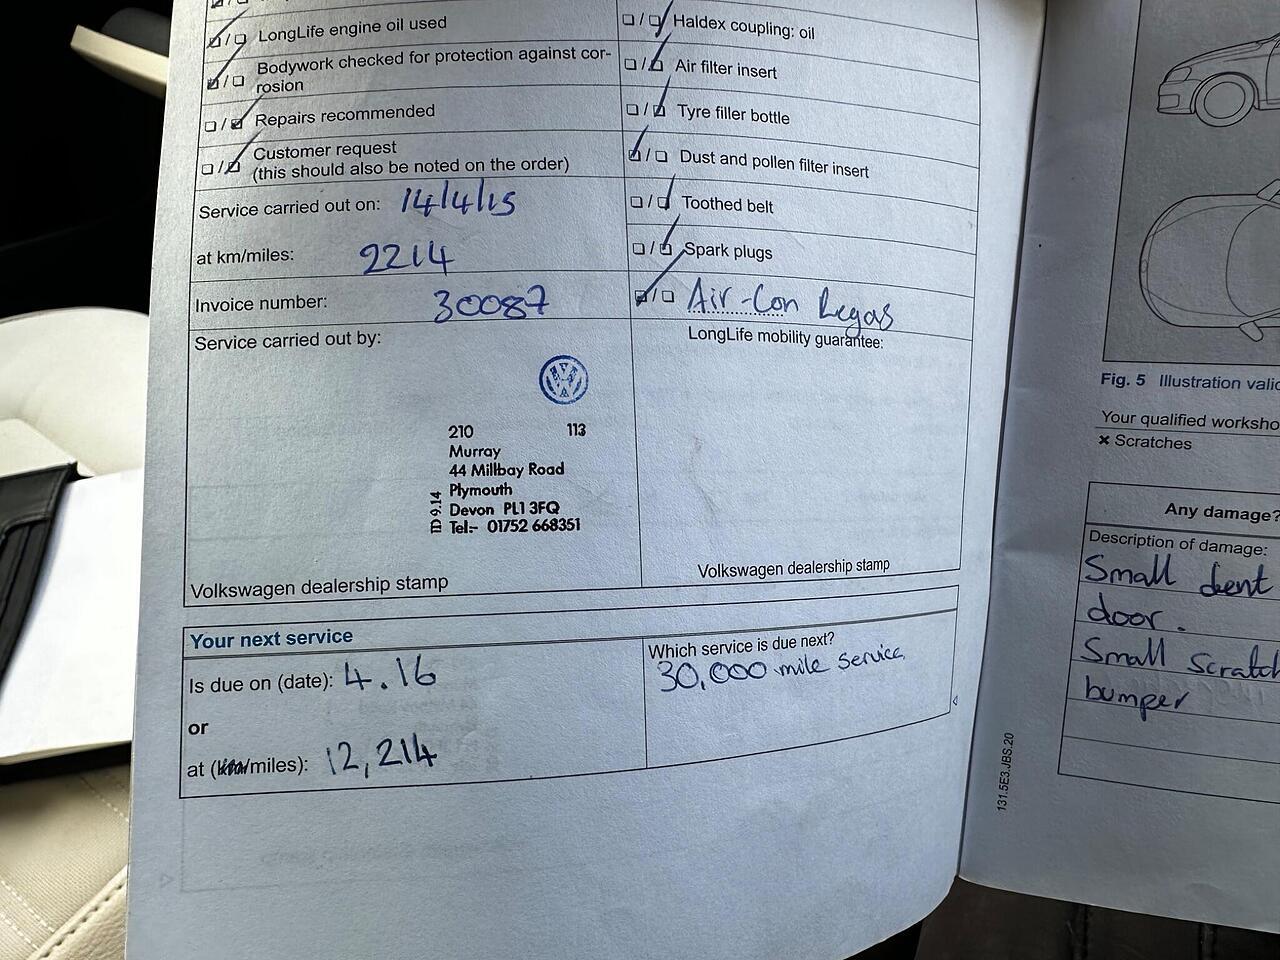 LongLife engine oil used
Bodywork checked for protection against cor-
rosion
Repairs recommended
Customer request
(this should also be noted on the order)
Service carried out on: 14/4/15
at km/miles: 2214
Invoice number: 30087
Service carried out by:
210 113
Murray
44 Millbay Road
Plymouth
Devon PL1 3FQ
Tel:- 01752 668351
ID 9.14
Volkswagen dealership stamp
Haldex coupling: oil
Air filter insert
Tyre filler bottle
Dust and pollen filter insert
Toothed belt
Spark plugs
Air-Con Regas
LongLife mobility guarantee:
Volkswagen dealership stamp
Your next service
Is due on (date): 4.16
or
at (km/miles): 12,214
Which service is due next?
30,000 mile service
131.5E3.JBS.20
Fig. 5 Illustration valid
Your qualified worksho
× Scratches
Any damage?
Description of damage:
Small dent
door.
Small scratch
bumper